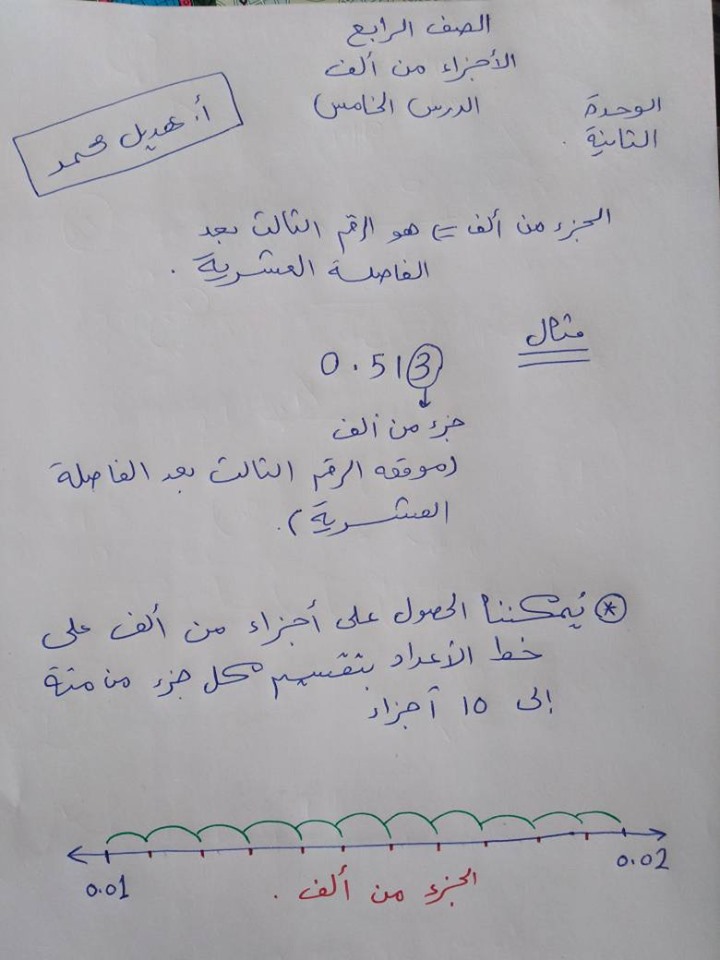 الصف الرابع
الأجزاء من ألف
الدرس الخامس
الوحدة
الثانية.
أ. هديل محمد
الجزء من ألف = هو الرقم الثالث بعد
الفاصلة العشرية.
مثال
0.513
جزء من ألف
(موقعه الرقم الثالث بعد الفاصلة
العشرية).
* يُمكننا الحصول على أجزاء من ألف على
خط الأعداد بتقسيم كل جزء من مئة
إلى 10 أجزاء
0.01
0.02
الجزء من ألف.